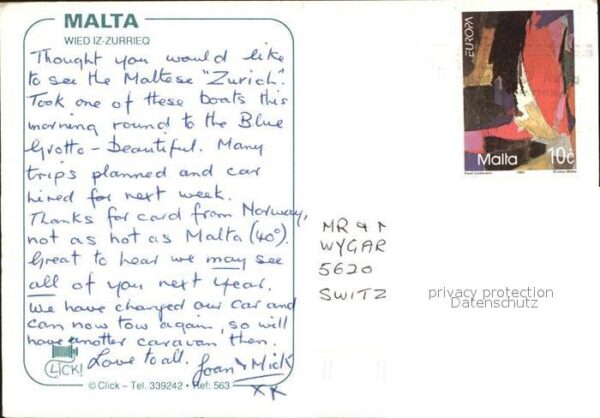 MALTA
WIED IZ-ZURRIEQ
Thought you would like
to see the Maltese "Zurich".
Took one of these boats this
morning round to the Blue
Grotto - beautiful. Many
trips planned and car
hired for next week.
Thanks for card from Norway,
not as hot as Malta (40°).
Great to hear we may see
all of you next year.
We have changed our car and
can now tow again, so will
have another caravan then.
Love to all. Joan & Mick
XX
CLICK!
© Click - Tel. 339242 • Ref: 563
EUROPA
Malta 10c
1993
MR & M
WYGAR
5620
SWITZ
privacy protection
Datenschutz